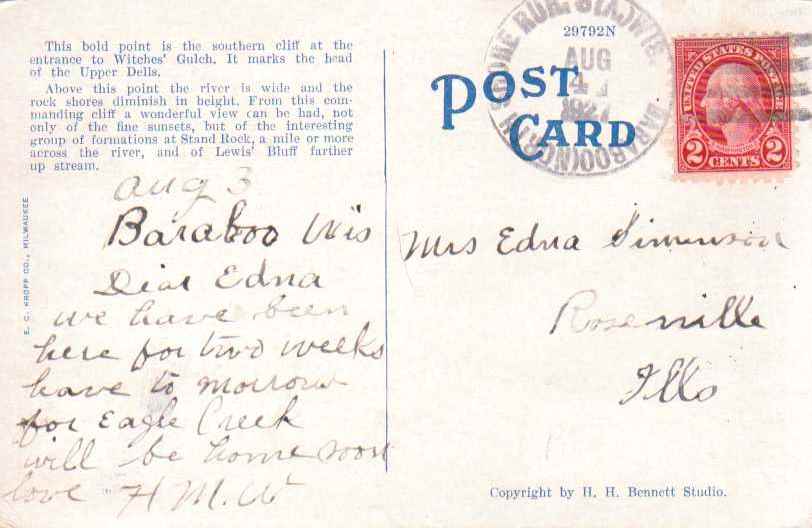 This bold point is the southern cliff at the
entrance to Witches' Gulch. It marks the head
of the Upper Dells.
Above this point the river is wide and the
rock shores diminish in height. From this com-
manding cliff a wonderful view can be had, not
only of the fine sunsets, but of the interesting
group of formations at Stand Rock, a mile or more
across the river, and of Lewis' Bluff farther
up stream.
E. C. KROPP CO., MILWAUKEE
Aug 3
Baraboo Wis
Dear Edna
we have been
here for two weeks
leave to morrow
for Eagle Creek
will be home soon
love H M. W
29792N
POST
CARD
BARABOO (NORTH SHORE RUR. STA.) WIS.
AUG
4
UNITED STATES POSTAGE
2 CENTS 2
Mrs Edna Simonson
Roseville
Ills
Copyright by H. H. Bennett Studio.